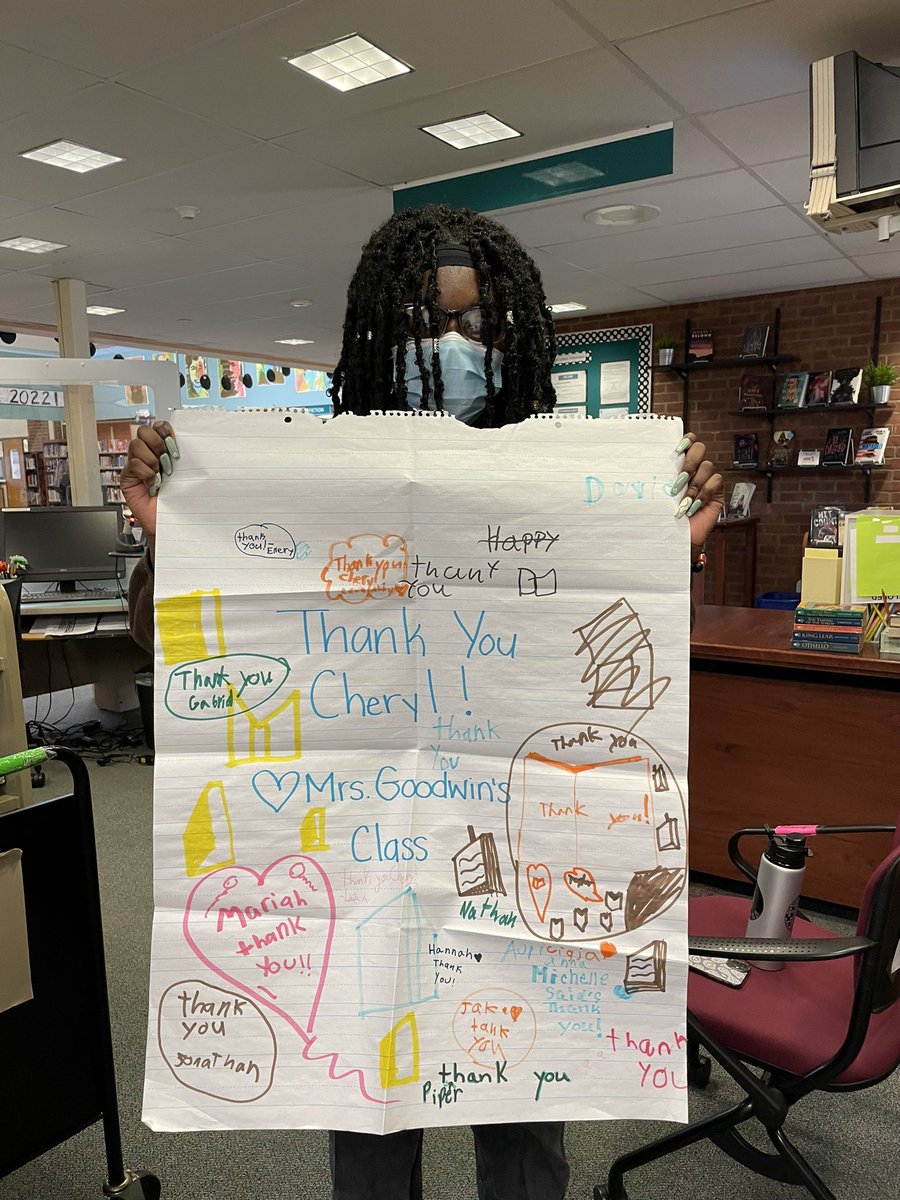 20221
David
thank
you!
-Emery
Thank you
cheryl!
Happy
thank
You
Thank You
Cheryl!
Thank you
Gabriel
thank
you
Thank you
Thank you!
Mrs. Goodwin's
Class
Nathan
Mariah
thank
you!!
Hannah
Thank
you!
Michelle
Said's
Thank
you!
Thank
you
Jonathan
Jake
tank
you
thank
you
thank you
Piper
KING LEAR
OTHELLO